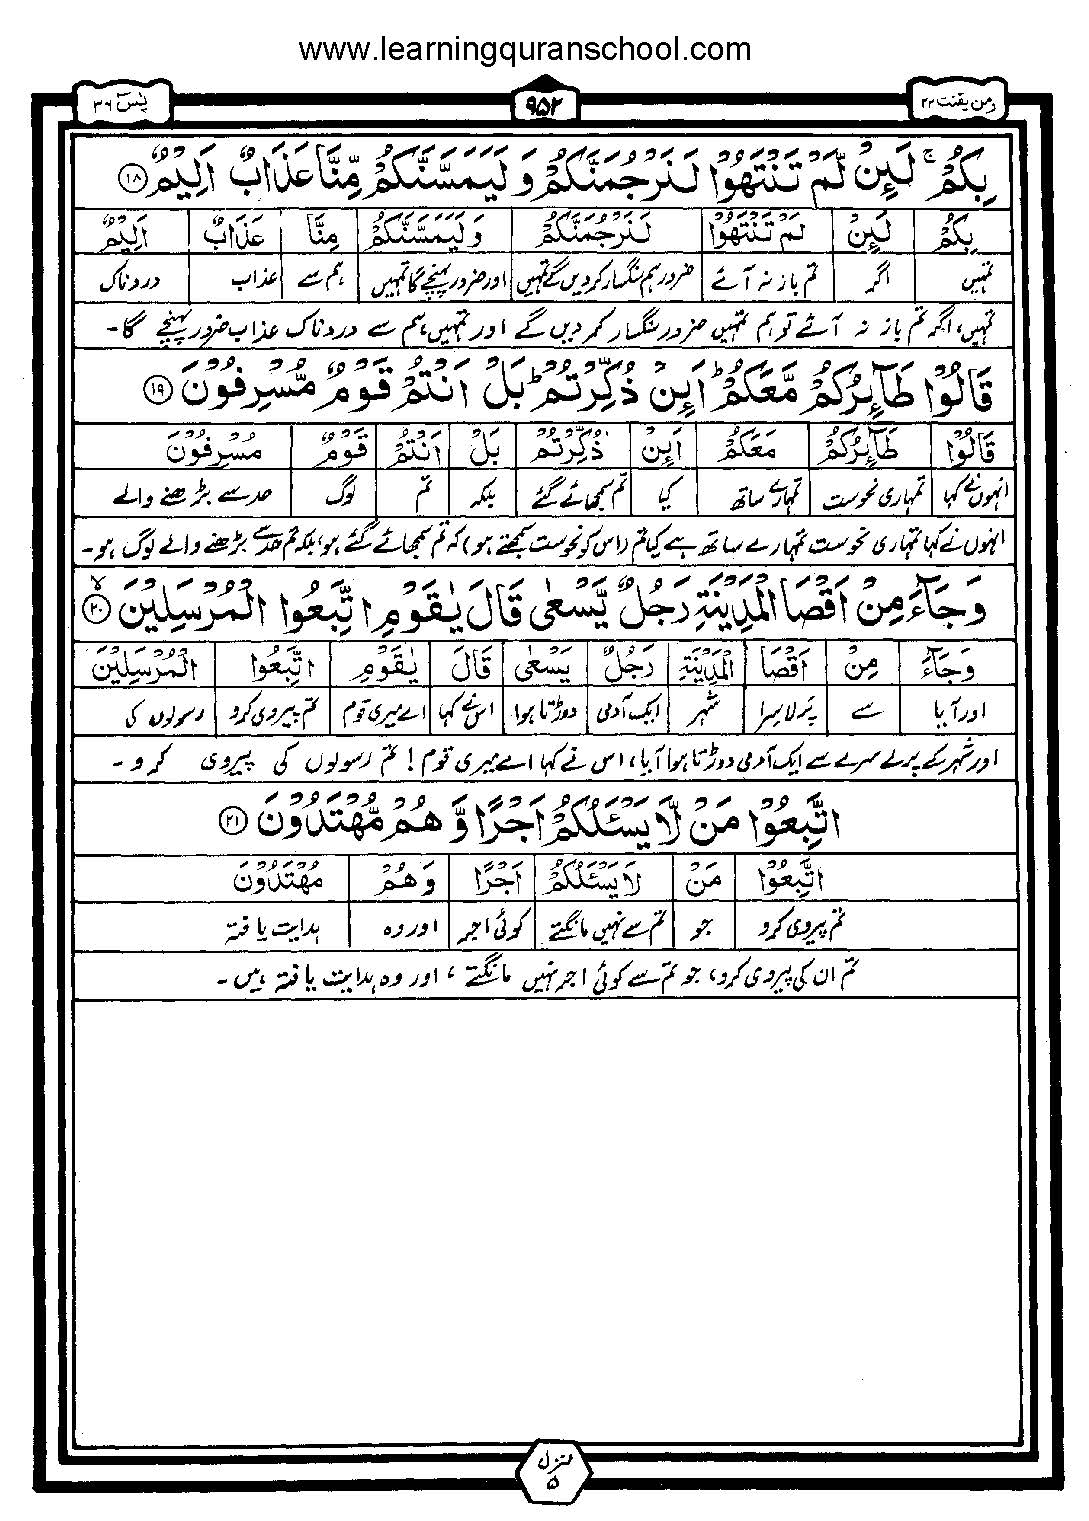 www.learningquranschool.com
ومن یقنت ۲۲
۹۵۲
یٰسٓ ۳۶
بِكُمْ ۚ لَىِٕنْ لَّمْ تَنْتَهُوْا لَنَرْجُمَنَّكُمْ وَ لَیَمَسَّنَّكُمْ مِّنَّا عَذَابٌ اَلِیْمٌ ۱۸
بِكُمْ لَىِٕنْ لَمْ تَنْتَهُوْا لَنَرْجُمَنَّكُمْ وَلَیَمَسَّنَّكُمْ مِنَّا عَذَابٌ اَلِیْمٌ
تمہیں اگر تم باز نہ آئے ضرور ہم سنگسار کردیں گے تمہیں اور ضرور پہنچے گا تمہیں ہم سے عذاب دردناک
تمہیں، اگر تم باز نہ آئے تو ہم تمہیں ضرور سنگسار کردیں گے اور تمہیں ہم سے دردناک عذاب ضرور پہنچے گا۔
قَالُوْا طَآىِٕرُكُمْ مَّعَكُمْ ؕ اَىِٕنْ ذُكِّرْتُمْ ؕ بَلْ اَنْتُمْ قَوْمٌ مُّسْرِفُوْنَ ۱۹
قَالُوْا طَآىِٕرُكُمْ مَعَكُمْ اَىِٕنْ ذُكِّرْتُمْ بَلْ اَنْتُمْ قَوْمٌ مُسْرِفُوْنَ
انہوں نے کہا تمہاری نحوست تمہارے ساتھ کیا تم سمجھائے گئے بلکہ تم لوگ حد سے بڑھنے والے
انہوں نے کہا تمہاری نحوست تمہارے ساتھ ہے کیا تم (اس کو نحوست سمجھتے ہو) کہ تم سمجھائے گئے ہو، بلکہ تم حد سے بڑھنے والے لوگ ہو۔
وَ جَآءَ مِنْ اَقْصَا الْمَدِیْنَةِ رَجُلٌ یَّسْعٰی قَالَ یٰقَوْمِ اتَّبِعُوا الْمُرْسَلِیْنَ ۲۰ لا
وَجَآءَ مِنْ اَقْصَا الْمَدِیْنَةِ رَجُلٌ یَسْعٰی قَالَ یٰقَوْمِ اتَّبِعُوا الْمُرْسَلِیْنَ
اور آیا سے پرلا سرا شہر ایک آدمی دوڑتا ہوا اس نے کہا اے میری قوم تم پیروی کرو رسولوں کی
اور شہر کے پرلے سرے سے ایک آدمی دوڑتا ہوا آیا، اس نے کہا اے میری قوم! تم رسولوں کی پیروی کرو۔
اتَّبِعُوْا مَنْ لَّا یَسْـَٔلُكُمْ اَجْرًا وَّ هُمْ مُّهْتَدُوْنَ ۲۱
اتَّبِعُوْا مَنْ لَا یَسْـَٔلُكُمْ اَجْرًا وَهُمْ مُهْتَدُوْنَ
تم پیروی کرو جو تم سے نہیں مانگتے کوئی اجر اور وہ ہدایت یافتہ
تم ان کی پیروی کرو، جو تم سے کوئی اجر نہیں مانگتے، اور وہ ہدایت یافتہ ہیں۔
منزل
۵